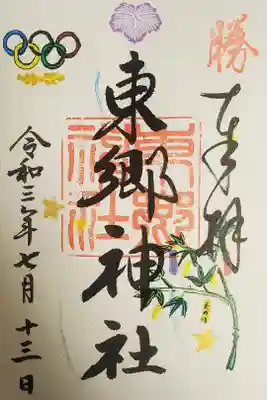 勝
奉拝
東郷神社
令和三年七月十三日